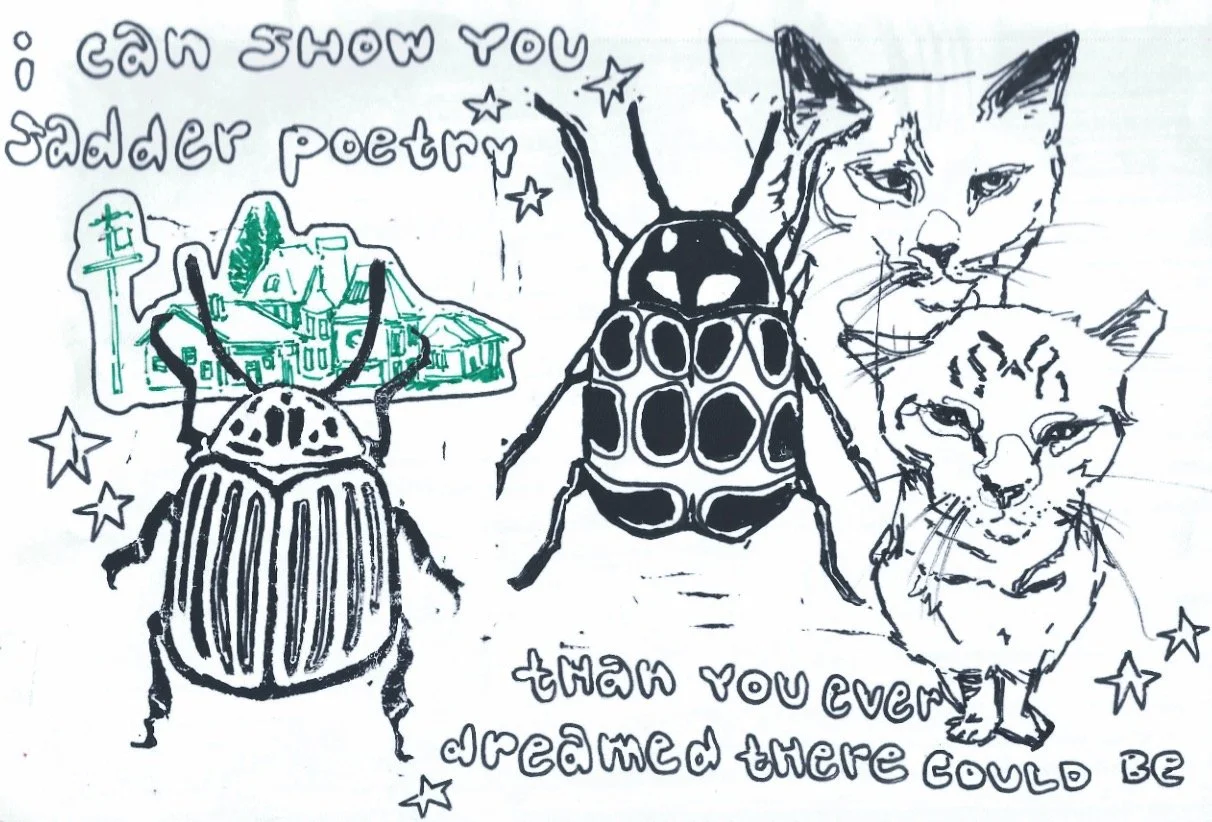 i can SHOW YOU
sadder poetry
tHan YOU ever
dreamed tHere COULD BE